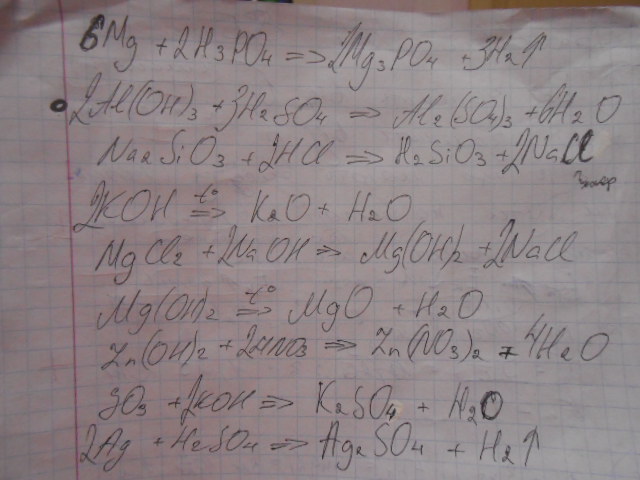 6Mg + 2H₃PO₄ => 2Mg₃PO₄ + 3H₂↑
2Al(OH)₃ + 3H₂SO₄ => Al₂(SO₄)₃ + 6H₂O
Na₂SiO₃ + 2HCl => H₂SiO₃ + 2NaCl
2KOH t° => K₂O + H₂O
MgCl₂ + 2NaOH => Mg(OH)₂ + 2NaCl
Mg(OH)₂ t° => MgO + H₂O
Zn(OH)₂ + 2HNO₃ => Zn(NO₃)₂ + 4H₂O
SO₃ + 2KOH => K₂SO₄ + H₂O
2Ag + H₂SO₄ => Ag₂SO₄ + H₂↑